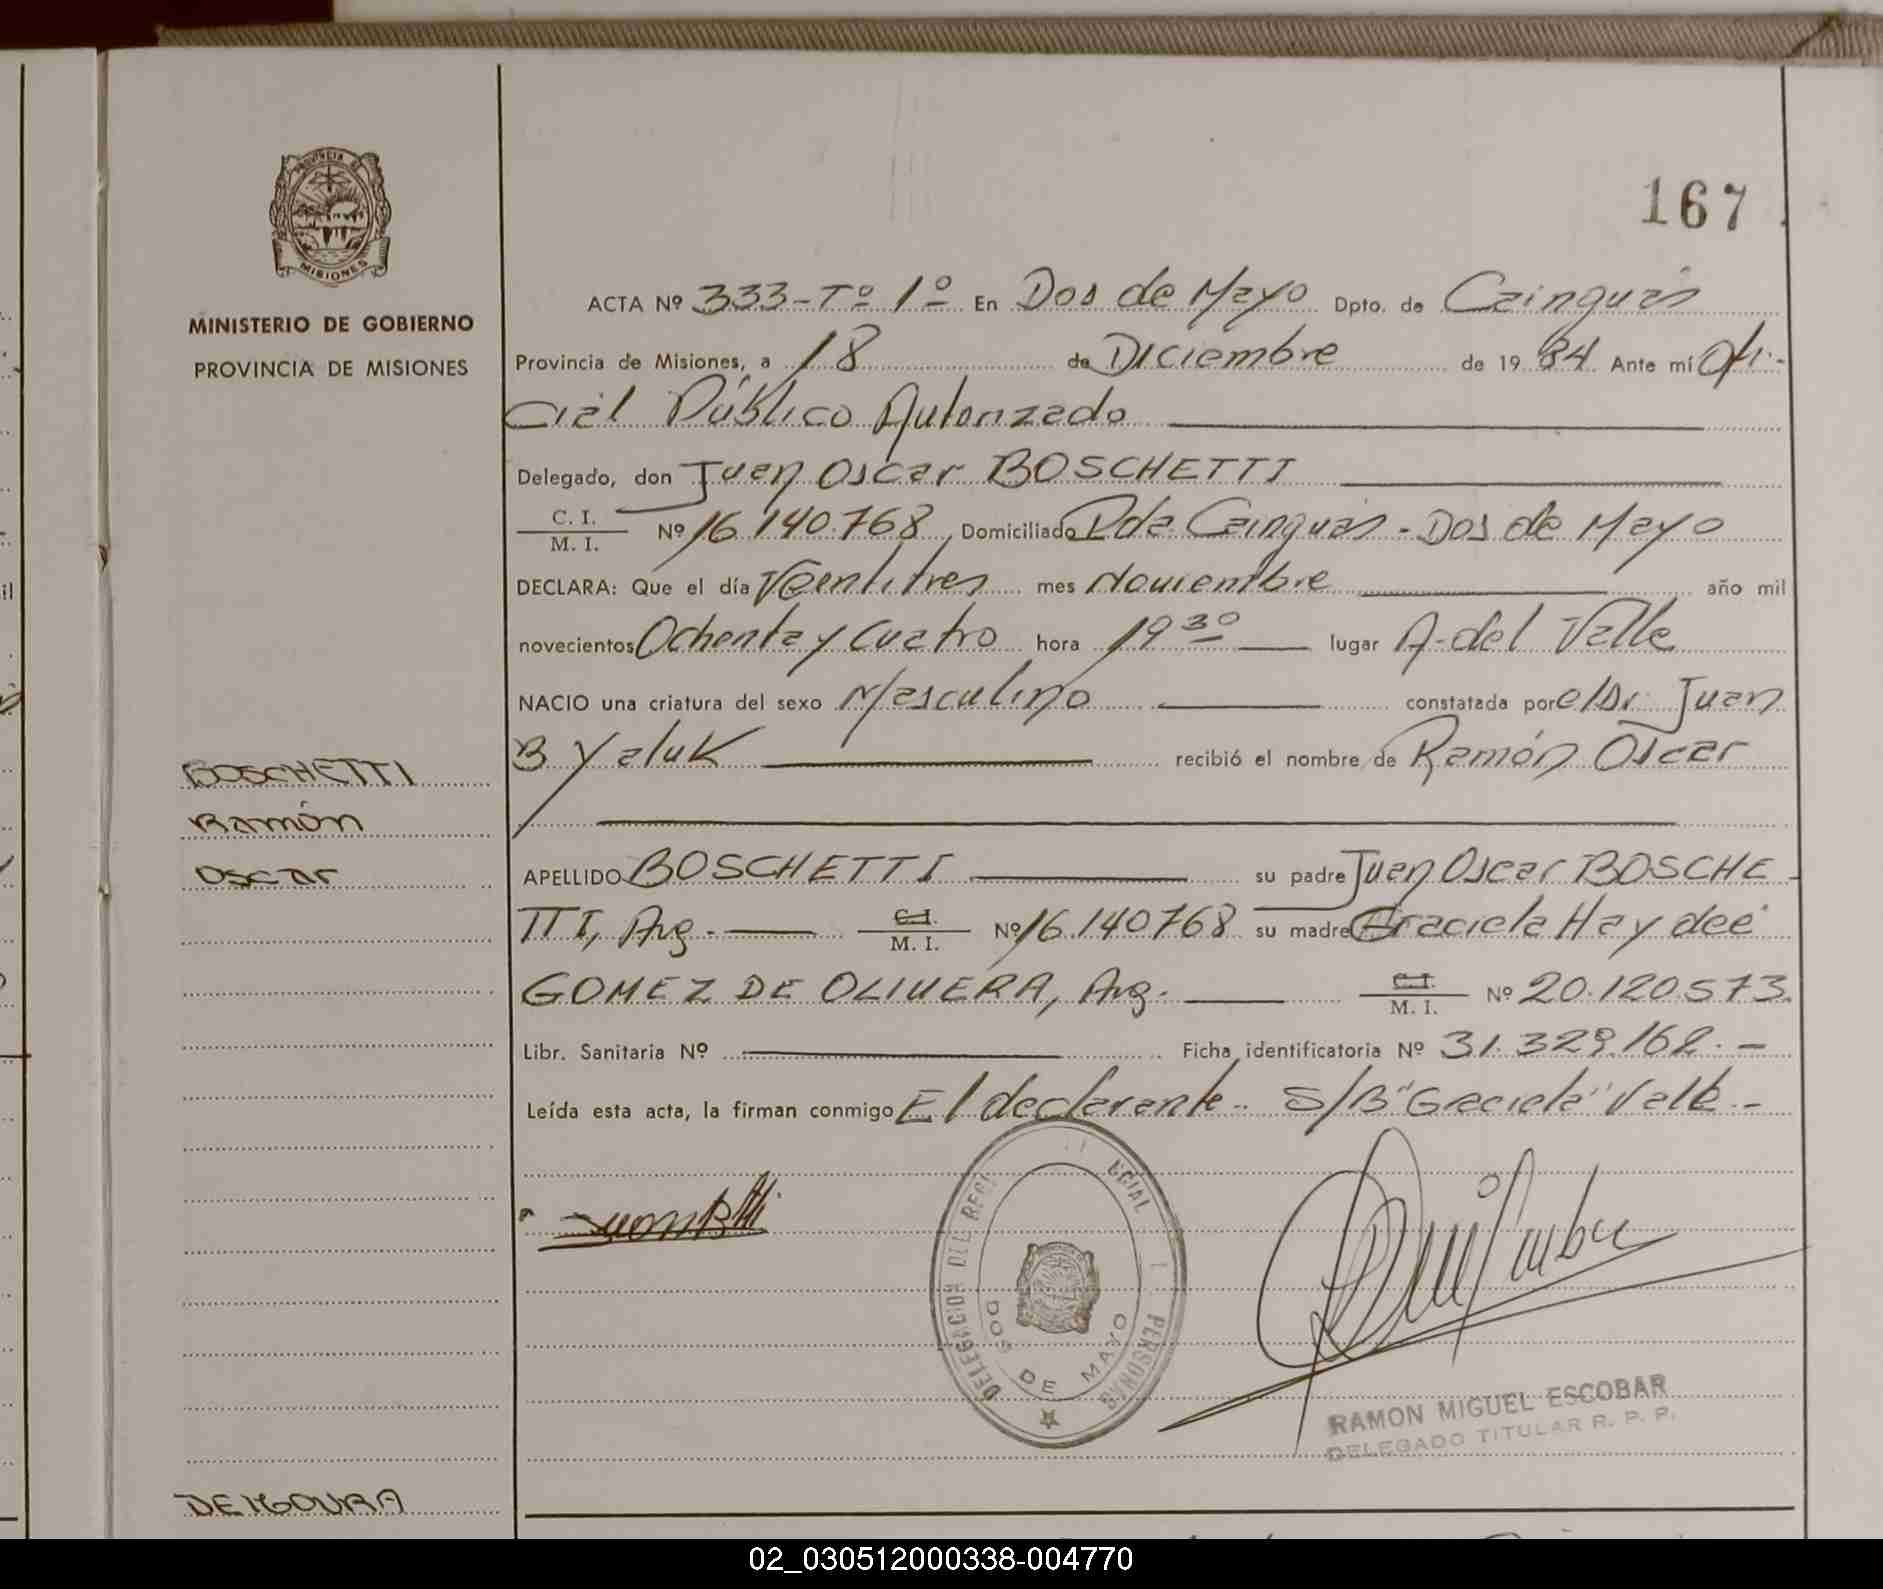 PROVINCIA DE
MISIONES
MINISTERIO DE GOBIERNO
PROVINCIA DE MISIONES
BOSCHETTI
Ramón
Oscar
DE MOURA
167
ACTA Nº 333-Tº 1º En Dos de Mayo Dpto. de Cainguás
Provincia de Misiones, a 18 de Diciembre de 1984 Ante mí Ofi-
cial Público Autorizado
Delegado, don Juan Oscar BOSCHETTI
C. I.
M. I. Nº 16.140.768 Domiciliado Pda. Cainguás - Dos de Mayo
DECLARA: Que el día Veintitres mes Noviembre año mil
novecientos Ochenta y Cuatro hora 19 30 lugar A. del Valle
NACIO una criatura del sexo Masculino constatada por el Dr. Juan
B Yaluk recibió el nombre de Ramón Oscar
APELLIDO BOSCHETTI su padre Juan Oscar BOSCHE
TTI, Arg. C. I. M. I. Nº 16.140768 su madre Graciela Haydeé
GOMEZ DE OLIVERA, Arg. C. I. M. I. Nº 20.120.573.
Libr. Sanitaria Nº Ficha identificatoria Nº 31.329.162.-
Leída esta acta, la firman conmigo El declarante.- S/B "Graciela" Valle.-
DELEGACION DEL REGI CIAL PERSONAS
DOS DE MAYO
RAMON MIGUEL ESCOBAR
DELEGADO TITULAR R. P. P.
02_030512000338-004770